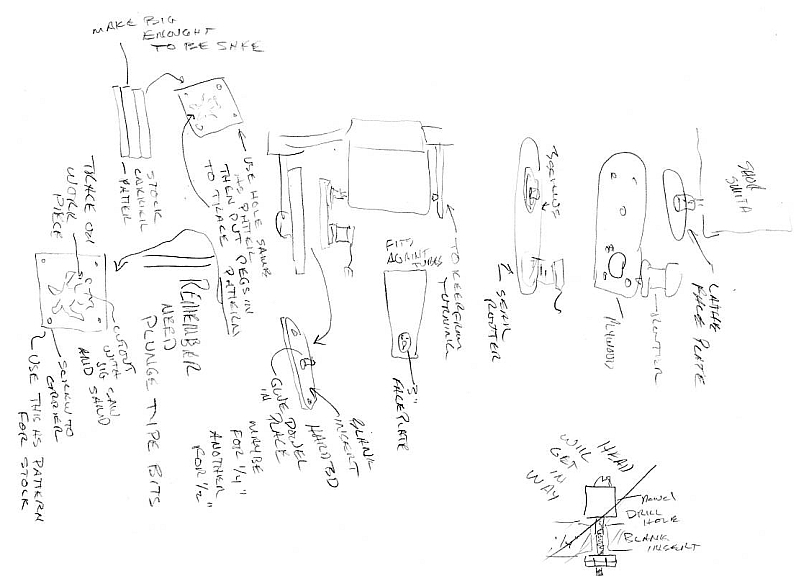 MAKE BIG
ENOUGHT
TO BE SAFE
STOCK
CARRIER
PATTER
USE HOLE SAWE
AS PATTERN
THEN PUT PEGS IN
TO TRACE PATTERN
TRACE ON
WORK
PIECE
CUTOUT
WITH JIG SAW
AND SAND
SCREW TO
CARRIER
USE THIS AS PATTERN
FOR STOCK
REMEMBER
NEED
PLUNGE TYPE BITS
TO KEEP FROM
TURNING
FITS
AGAINT
TUBES
3"
FACEPLATE
BLANK
HARD BD
INSERT
GLUE DOWEL
IN
PLACE
MAYBE
FOR 1/4"
ANOTHER
FOR 1/2"
SEAR
ROUTER
SHOP
SMITH
LATHE
FACE PLATE
ROUTER
PLYWOOD
HEAD
WILL
GET IN
WAY
DOWEL
DRILL
HOLE
BLANK
INSERT